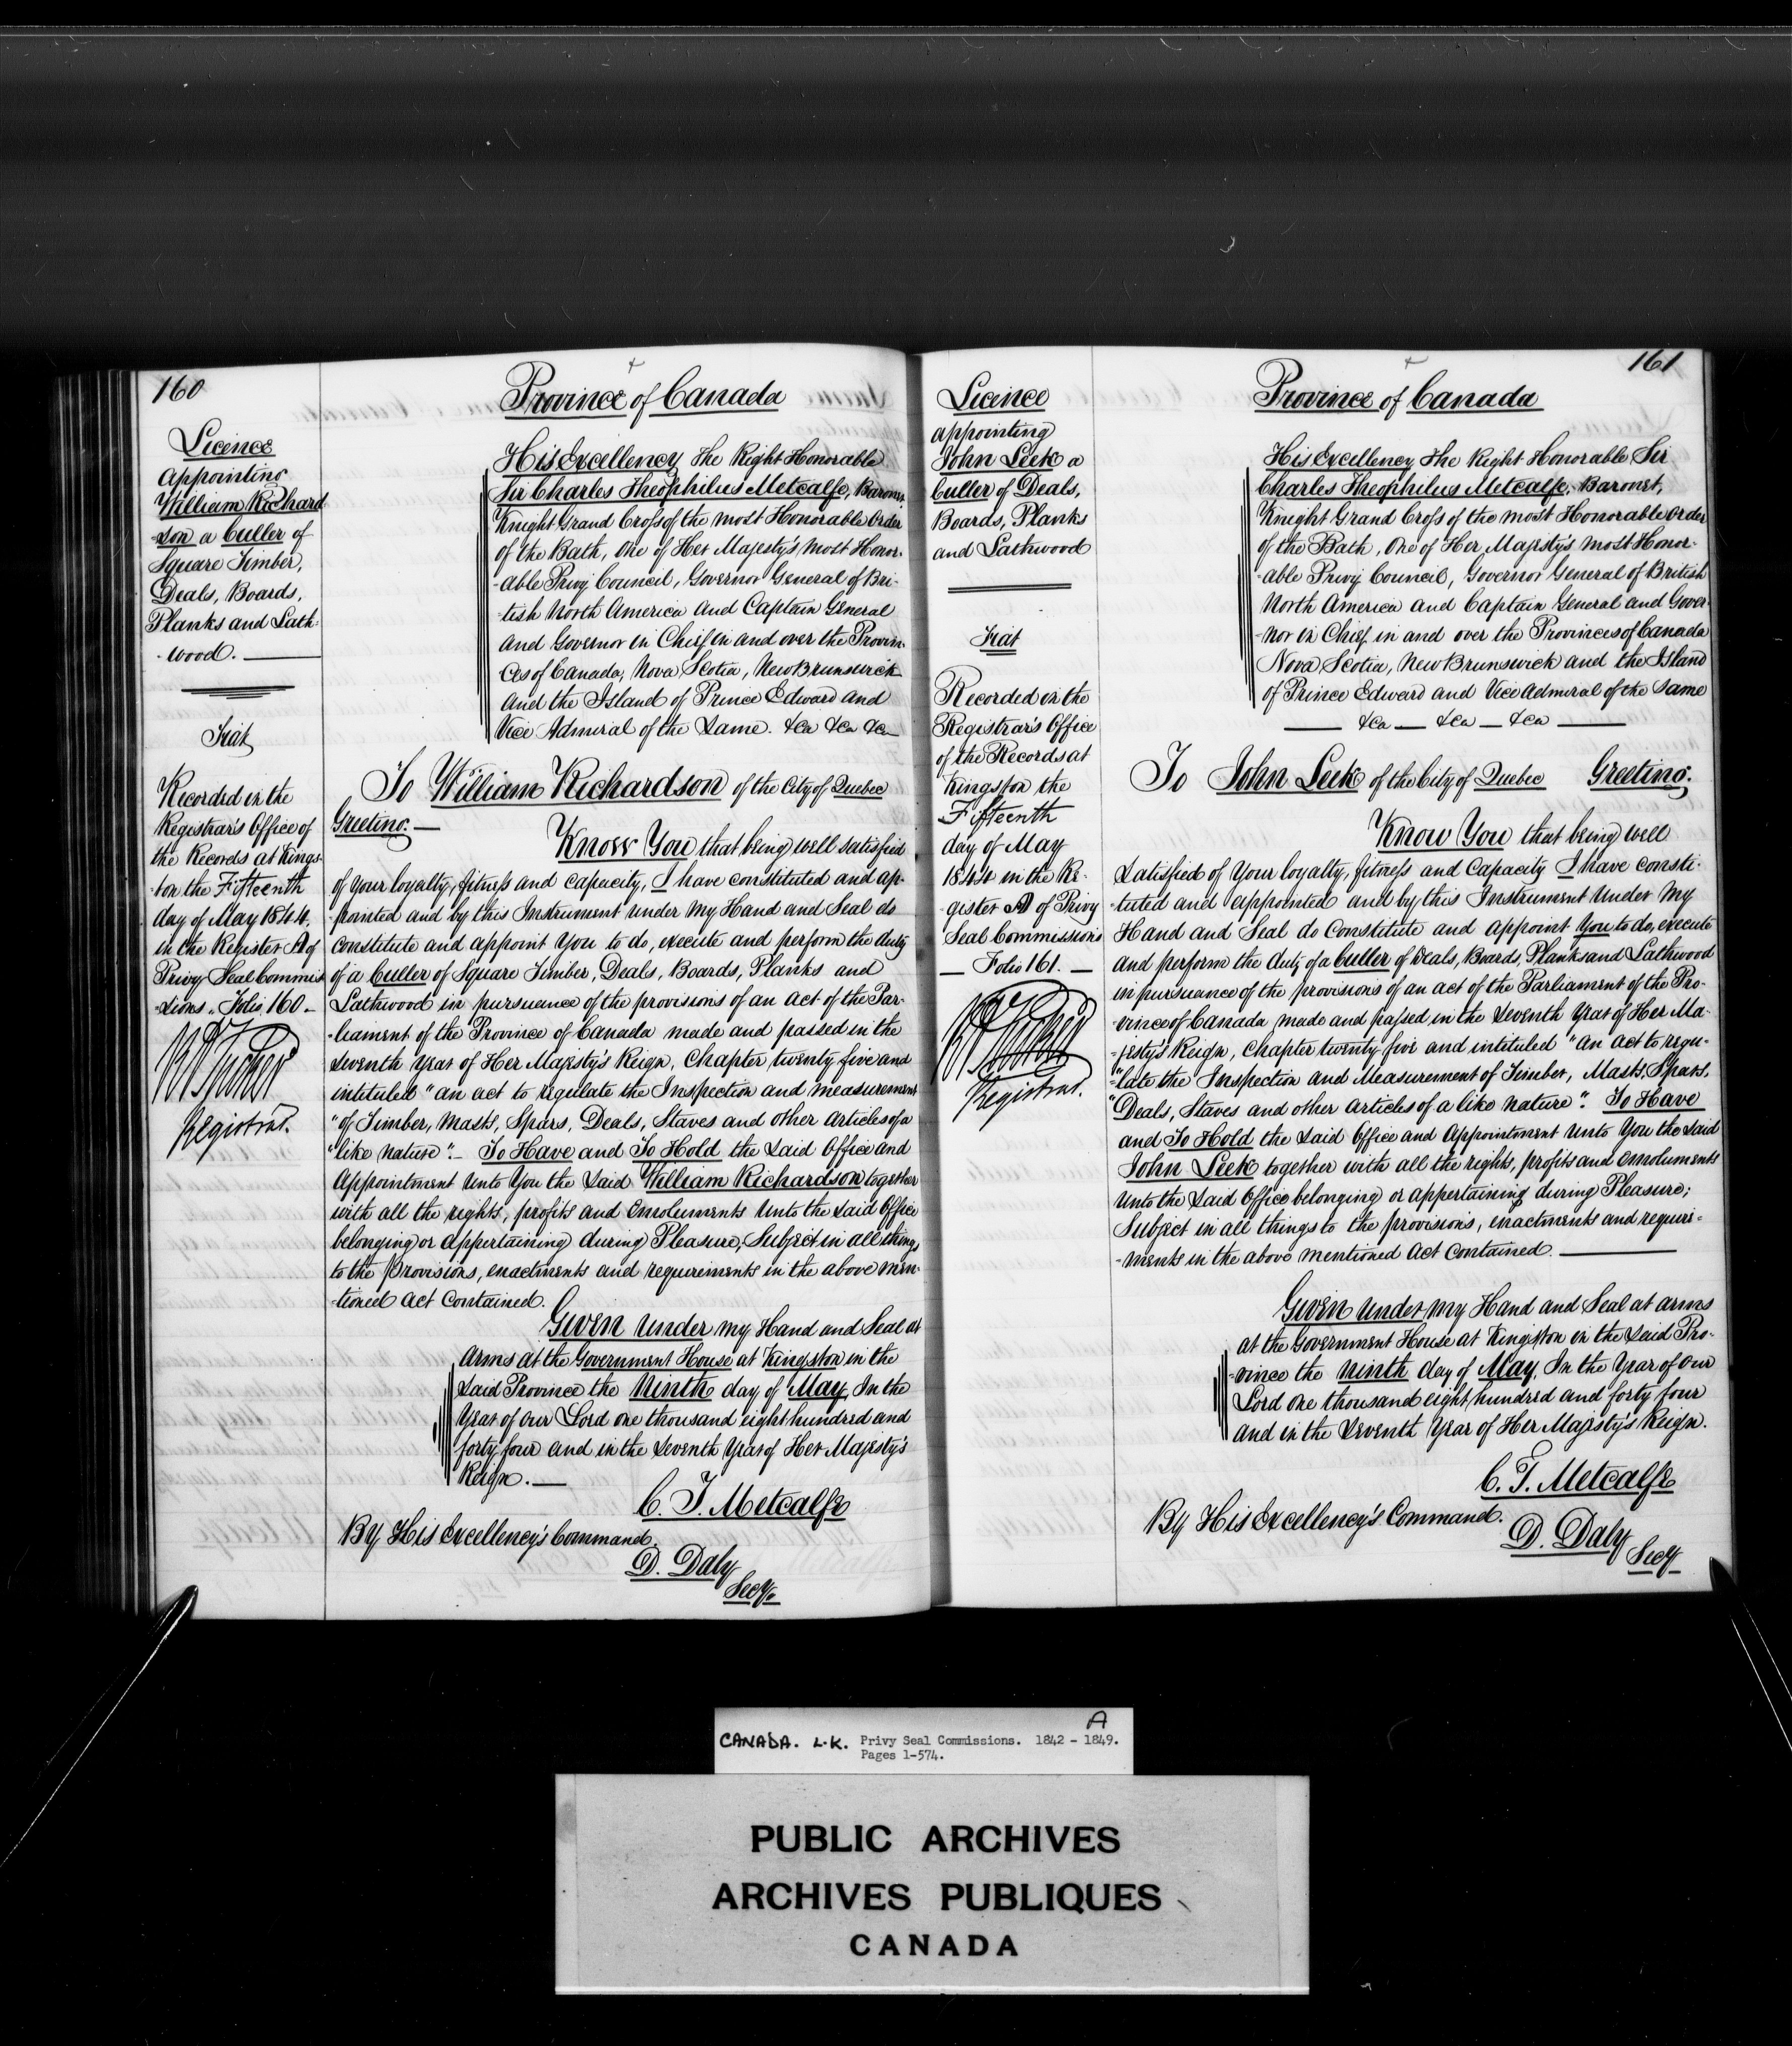 160
Licence
appointing
William Richard
-son a Culler of
Square Timber,
Deals, Boards,
Planks and Lath-
-wood.
Fiat
Recorded in the
Registrar's Office of
the Records at Kings-
-ton the Fifteenth
day of May 1844.
in the Register A of
Privy Seal Commis
-sions. Folio 160 -
Registrar.
Province of Canada
His Excellency The Right Honorable
Sir Charles Theophilus Metcalfe, Baronet,
Knight Grand Cross of the most Honorable Order
of the Bath, One of Her Majesty's most Honor-
-able Privy Council, Governor General of Bri-
-tish North America and Captain General
and Governor in Chief in and over the Provin-
ces of Canada, Nova Scotia, New Brunswick
and the Island of Prince Edward and
Vice Admiral of the Same. &ca &ca &ca
To William Richardson of the City of Quebec
Greeting. —
Know You that being well satisfied
of your loyalty, fitness and capacity, I have constituted and ap-
-pointed and by this Instrument under my Hand and Seal do
constitute and appoint You to do, execute and perform the duty
of a Culler of Square Timber, Deals, Boards, Planks and
Lathwood in pursuance of the provisions of an act of the Par-
-liament of the Province of Canada made and passed in the
Seventh Year of Her Majesty's Reign, Chapter twenty five and
intituled "an act to regulate the Inspection and measurement
"of Timber, Masts, Spars, Deals, Staves and other articles of a
"like nature". — To Have and To Hold the said Office and
Appointment Unto You the Said William Richardson together
with all the rights, profits and Emoluments Unto the said Office
belonging or appertaining during Pleasure, Subject in all things
to the provisions, enactments and requirements in the above men-
-tioned Act Contained.
Given under my Hand and Seal at
Arms at the Government House at Kingston in the
Said Province the Ninth day of May, In the
Year of our Lord one thousand eight hundred and
forty four and in the Seventh Year of Her Majesty's
Reign. —
C. T. Metcalfe
By His Excellency's Command.
D. Daly
Secy.
161
Licence
appointing
John Leek a
Culler of Deals,
Boards, Planks
and Lathwood
Fiat
Recorded in the
Registrar's Office
of the Records at
Kingston the
Fifteenth
day of May
1844 in the Re-
-gister A of Privy
Seal Commissions
— Folio 161. —
Registrar.
Province of Canada
His Excellency The Right Honorable Sir
Charles Theophilus Metcalfe, Baronet,
Knight Grand Cross of the most Honorable Order
of the Bath, One of Her Majesty's most Honor-
-able Privy Council, Governor General of British
North America and Captain General and Gover-
-nor in Chief in and over the Provinces of Canada
Nova Scotia, New Brunswick and the Island
of Prince Edward and Vice Admiral of the Same
— &ca — &ca — &ca —
To John Leek of the City of Quebec Greeting.
Know You that being well
Satisfied of Your loyalty, fitness and Capacity I have consti-
-tuted and appointed and by this Instrument Under My
Hand and Seal do Constitute and appoint You to do, execute
and perform the duty of a Culler of Deals, Boards, Planks and Lathwood
in pursuance of the provisions of an act of the Parliament of the Pro-
-vince of Canada made and passed in the Seventh Year of Her Ma-
-jesty's Reign, Chapter twenty five and intituled "an act to regu-
"late the Inspection and Measurement of Timber, Masts, Spars,
"Deals, Staves and other articles of a like nature". To Have
and To Hold the said Office and Appointment Unto You the Said
John Leek together with all the rights, profits and emoluments
Unto the Said Office belonging or appertaining during Pleasure;
Subject in all things to the provisions, enactments and requiri-
-ments in the above mentioned Act Contained.
Given under my Hand and Seal at arms
at the Government House at Kingston in the Said Pro-
-vince the Ninth day of May, In the Year of our
Lord one thousand eight hundred and forty four
and in the Seventh Year of Her Majesty's Reign.
C. T. Metcalfe
By His Excellency's Command.
D. Daly
Secy
A
CANADA. L.K. Privy Seal Commissions. 1842 - 1849.
Pages 1-574.
PUBLIC ARCHIVES
ARCHIVES PUBLIQUES
CANADA